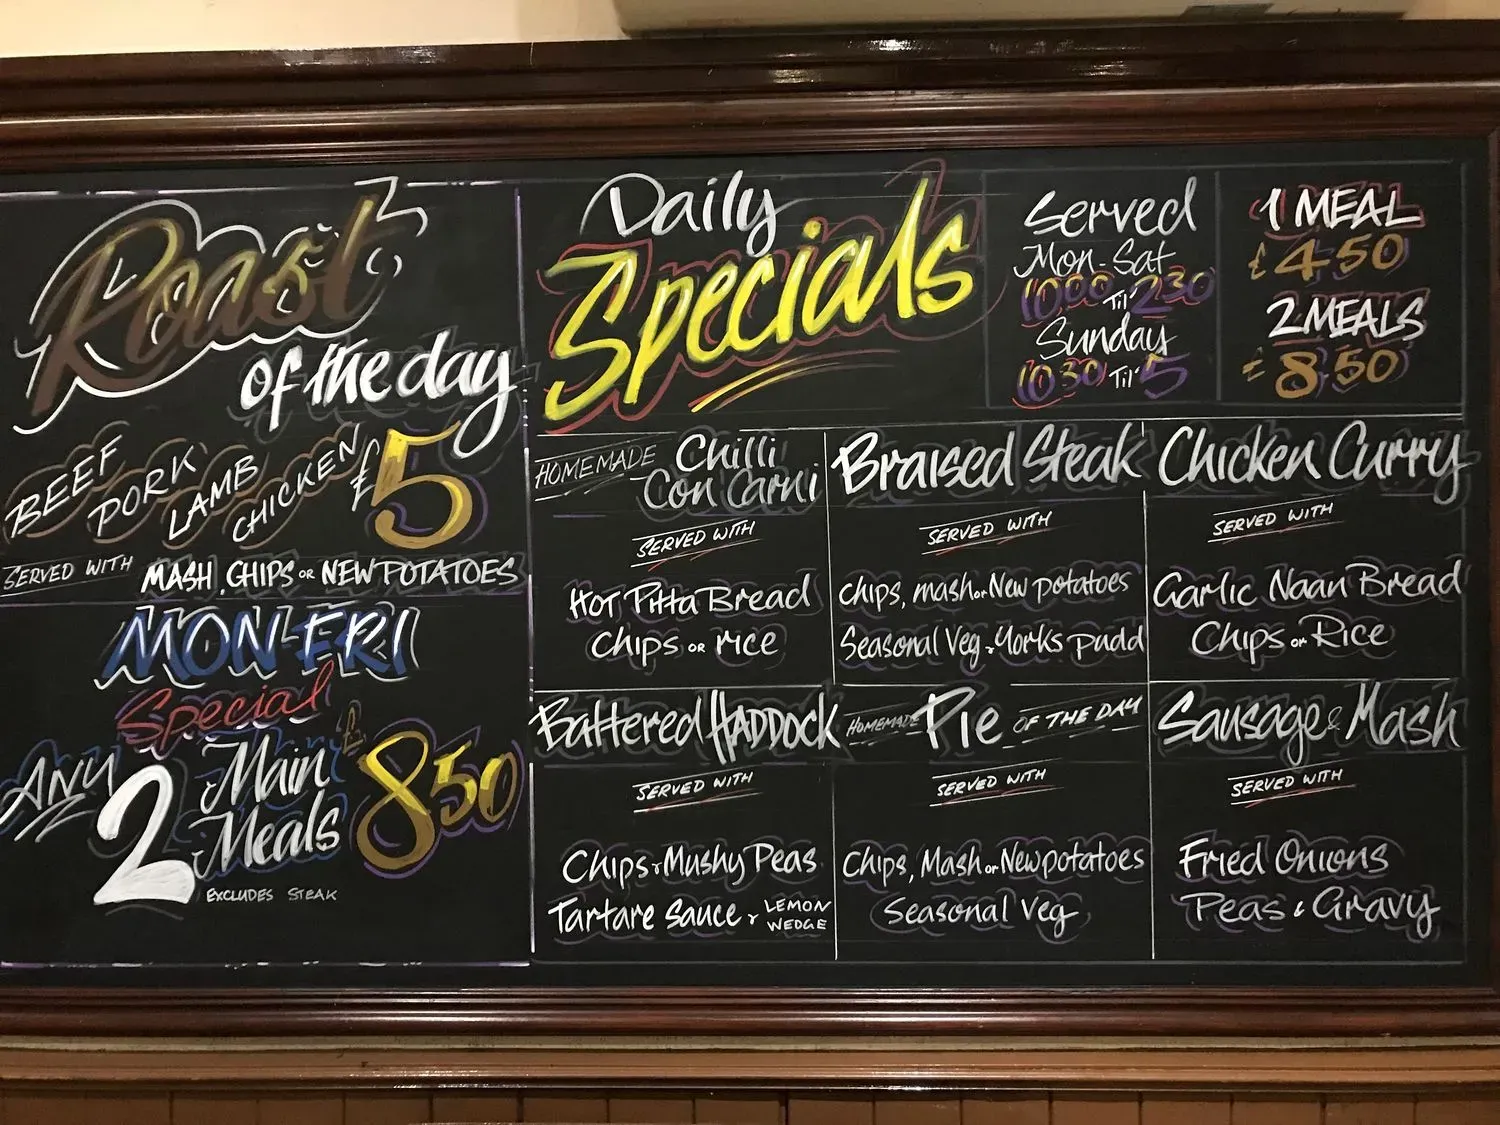 Roast
of the day
BEEF PORK LAMB CHICKEN £5
SERVED WITH MASH, CHIPS OR NEW POTATOES
MON-FRI
Special
ANY 2 Main Meals £8.50
EXCLUDES STEAK
Daily
Specials
Served
Mon-Sat
10:00 Til' 2:30
Sunday
10:30 Til' 5
1 MEAL
£4.50
2 MEALS
£8.50
HOMEMADE Chilli
Con Carni
SERVED WITH
HOT Pitta Bread
Chips OR rice
Braised Steak
SERVED WITH
Chips, mash or New potatoes
Seasonal Veg & Yorks pudd
Chicken Curry
SERVED WITH
Garlic Naan Bread
Chips or Rice
Battered HADDOCK
SERVED WITH
Chips & Mushy Peas
Tartare Sauce & LEMON
WEDGE
HOMEMADE Pie OF THE DAY
SERVED WITH
Chips, Mash or New potatoes
Seasonal Veg
Sausage & Mash
SERVED WITH
Fried Onions
Peas & Gravy